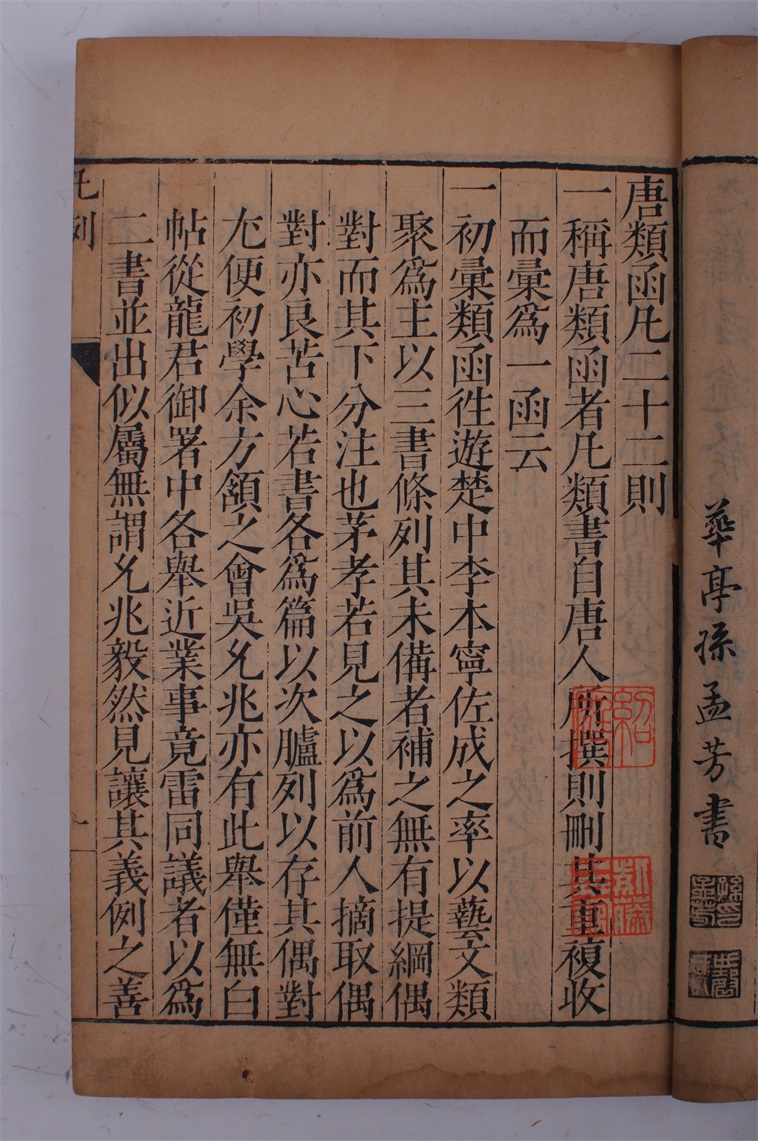 華亭孫孟芳書
唐類函凡二十二則
一稱唐類函者凡類書自唐人所撰則刪其重複收
而彙爲一函云
一初彙類函徃遊楚中李本寧佐成之率以藝文類
聚爲主以三書條列其未備者補之無有提綱偶
對而其下分注也茅孝若見之以爲前人摘取偶
對亦良苦心若書各爲篇以次臚列以存其偶對
尢便初學余方頷之會吳允兆亦有此舉僅無白
帖從龍君御署中各舉近業事竟雷同議者以爲
二書並出似屬無謂允兆毅然見讓其義例之善
凡列
一